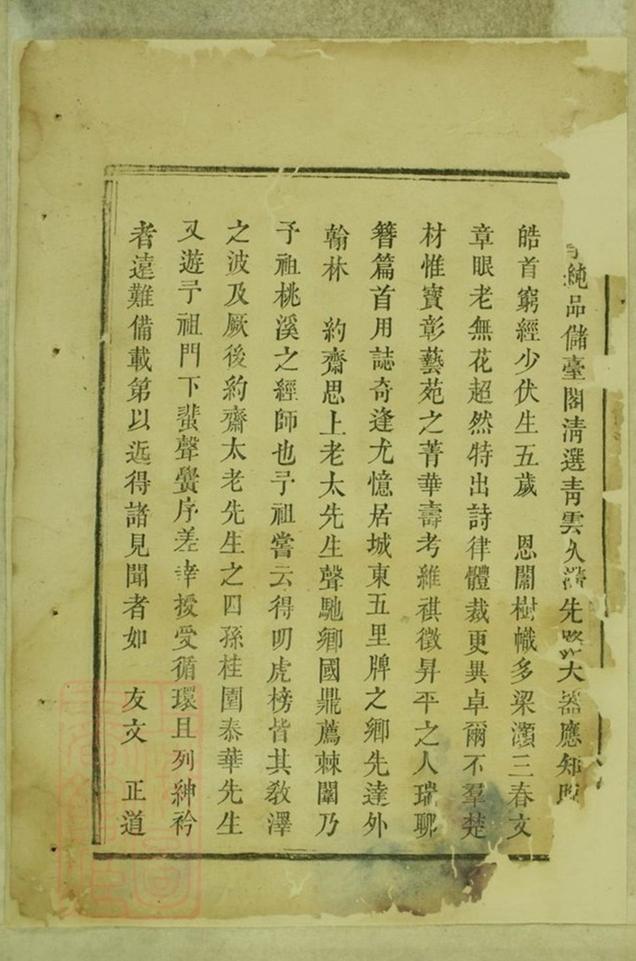 純品儲臺閣淸選靑雲久先大器應知
皓首窮經少伏生五歲　恩闈樹幟多梁灝三春文
章眼老無花超然特出詩律體裁更異卓爾不羣楚
材惟寶彰藝苑之菁華壽考維祺徵昇平之人瑞聊
簪篇首用誌奇逢尤憶居城東五里牌之鄕先達外
翰林　約齋思上老太先生聲馳鄕國鼎薦棘闈乃
予祖桃溪之經師也予祖嘗云得叨虎榜皆其敎澤
之波及厥後約齋太老先生之四孫桂園泰華先生
又遊予祖門下蜚聲黌序差幸授受循環且列紳衿
者遠難備載第以近得諸見聞者如　友文　正道